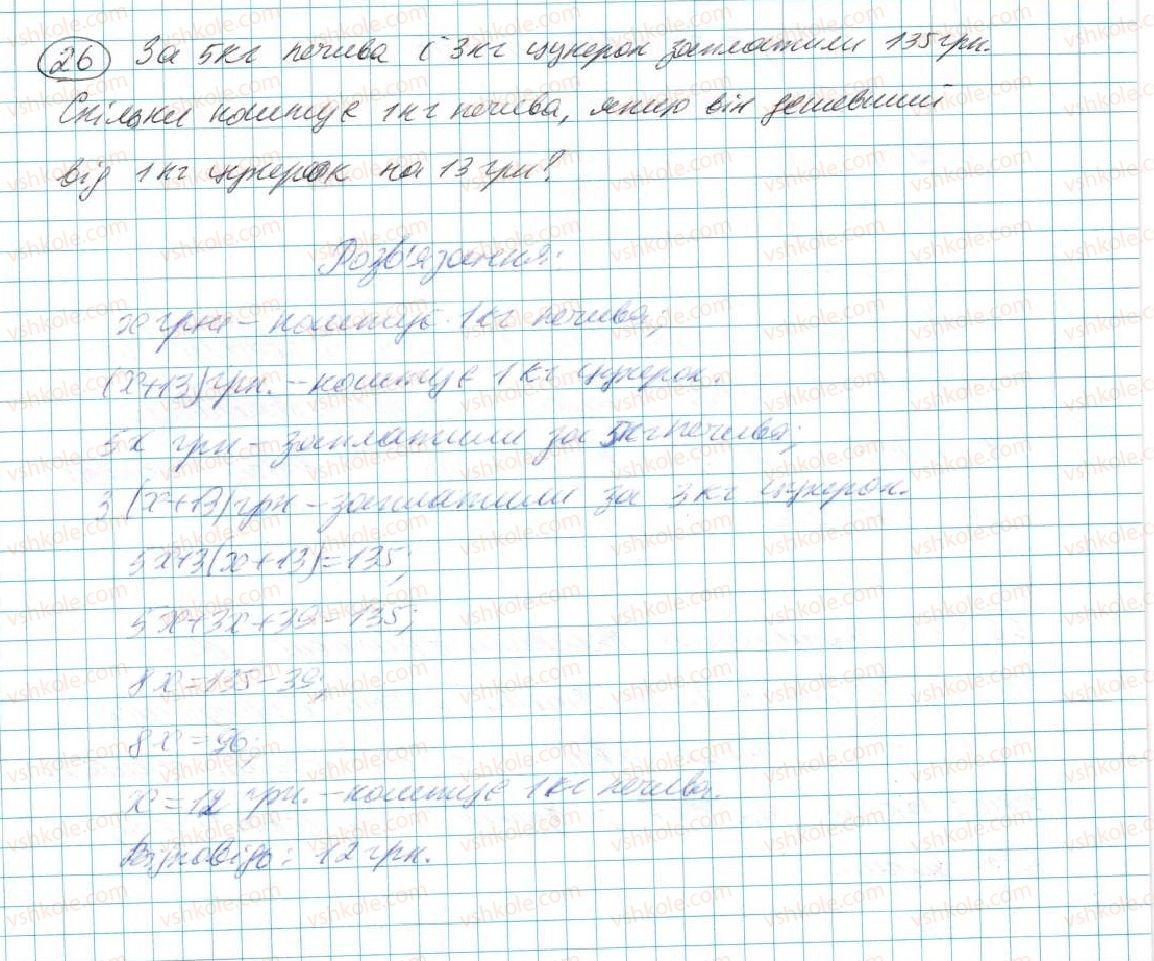 26 За 5кг печива і 3кг цукерок заплатили 135грн.
Скільки коштує 1кг печива, якщо він дешевший
від 1кг цукерок на 13грн?
Розв'язання:
x грн – коштує 1кг печива;
(x+13)грн. – коштує 1кг цукерок.
5x грн – заплатили за 5кг печива;
3(x+13)грн – заплатили за 3кг цукерок.
5x+3(x+13)=135;
5x+3x+39=135;
8x=135-39;
8x=96;
x=12 грн. – коштує 1кг печива.
Відповідь: 12грн.